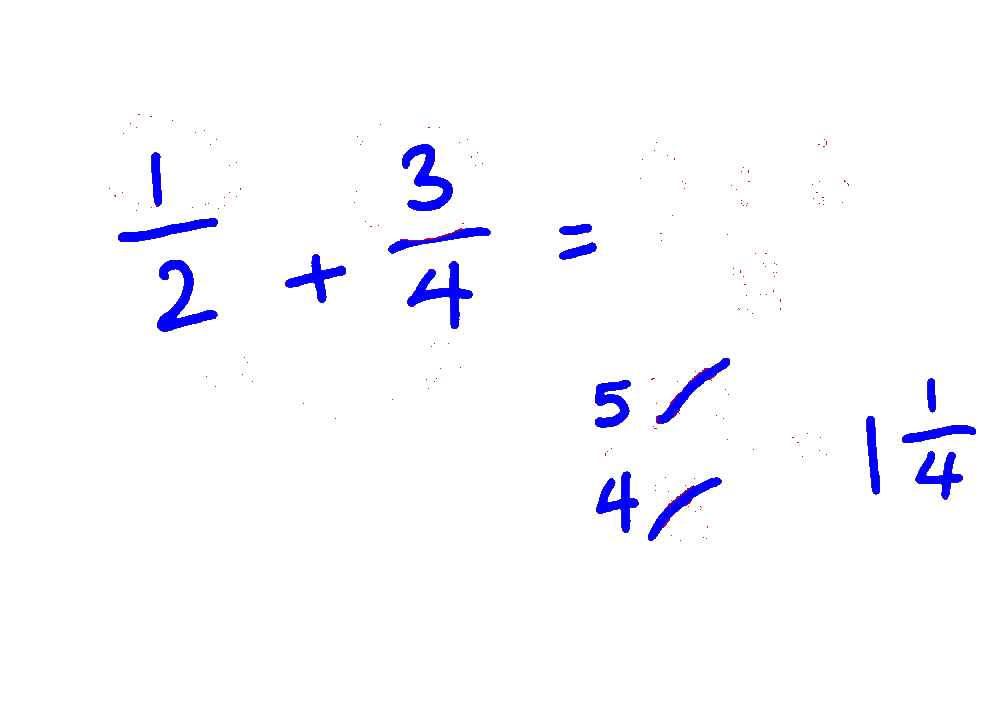 1/2 + 3/4 =
5/
4/
1 1/4